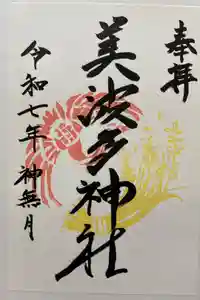 奉拝
美波多神社
令和七年 神無月